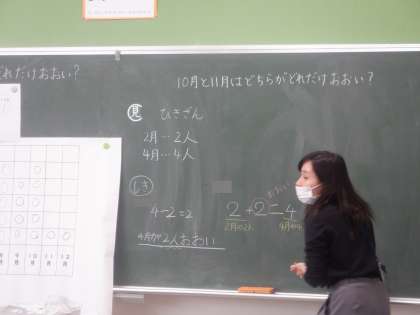 どれだけおおい？
10月と11月はどちらがどれだけおおい？
見 ひきざん
2月…2人
4月…4人
しき
4-2=2
4月が2人おおい
おおい
2+2=4
2月の2人
9月 10月 11月 12月